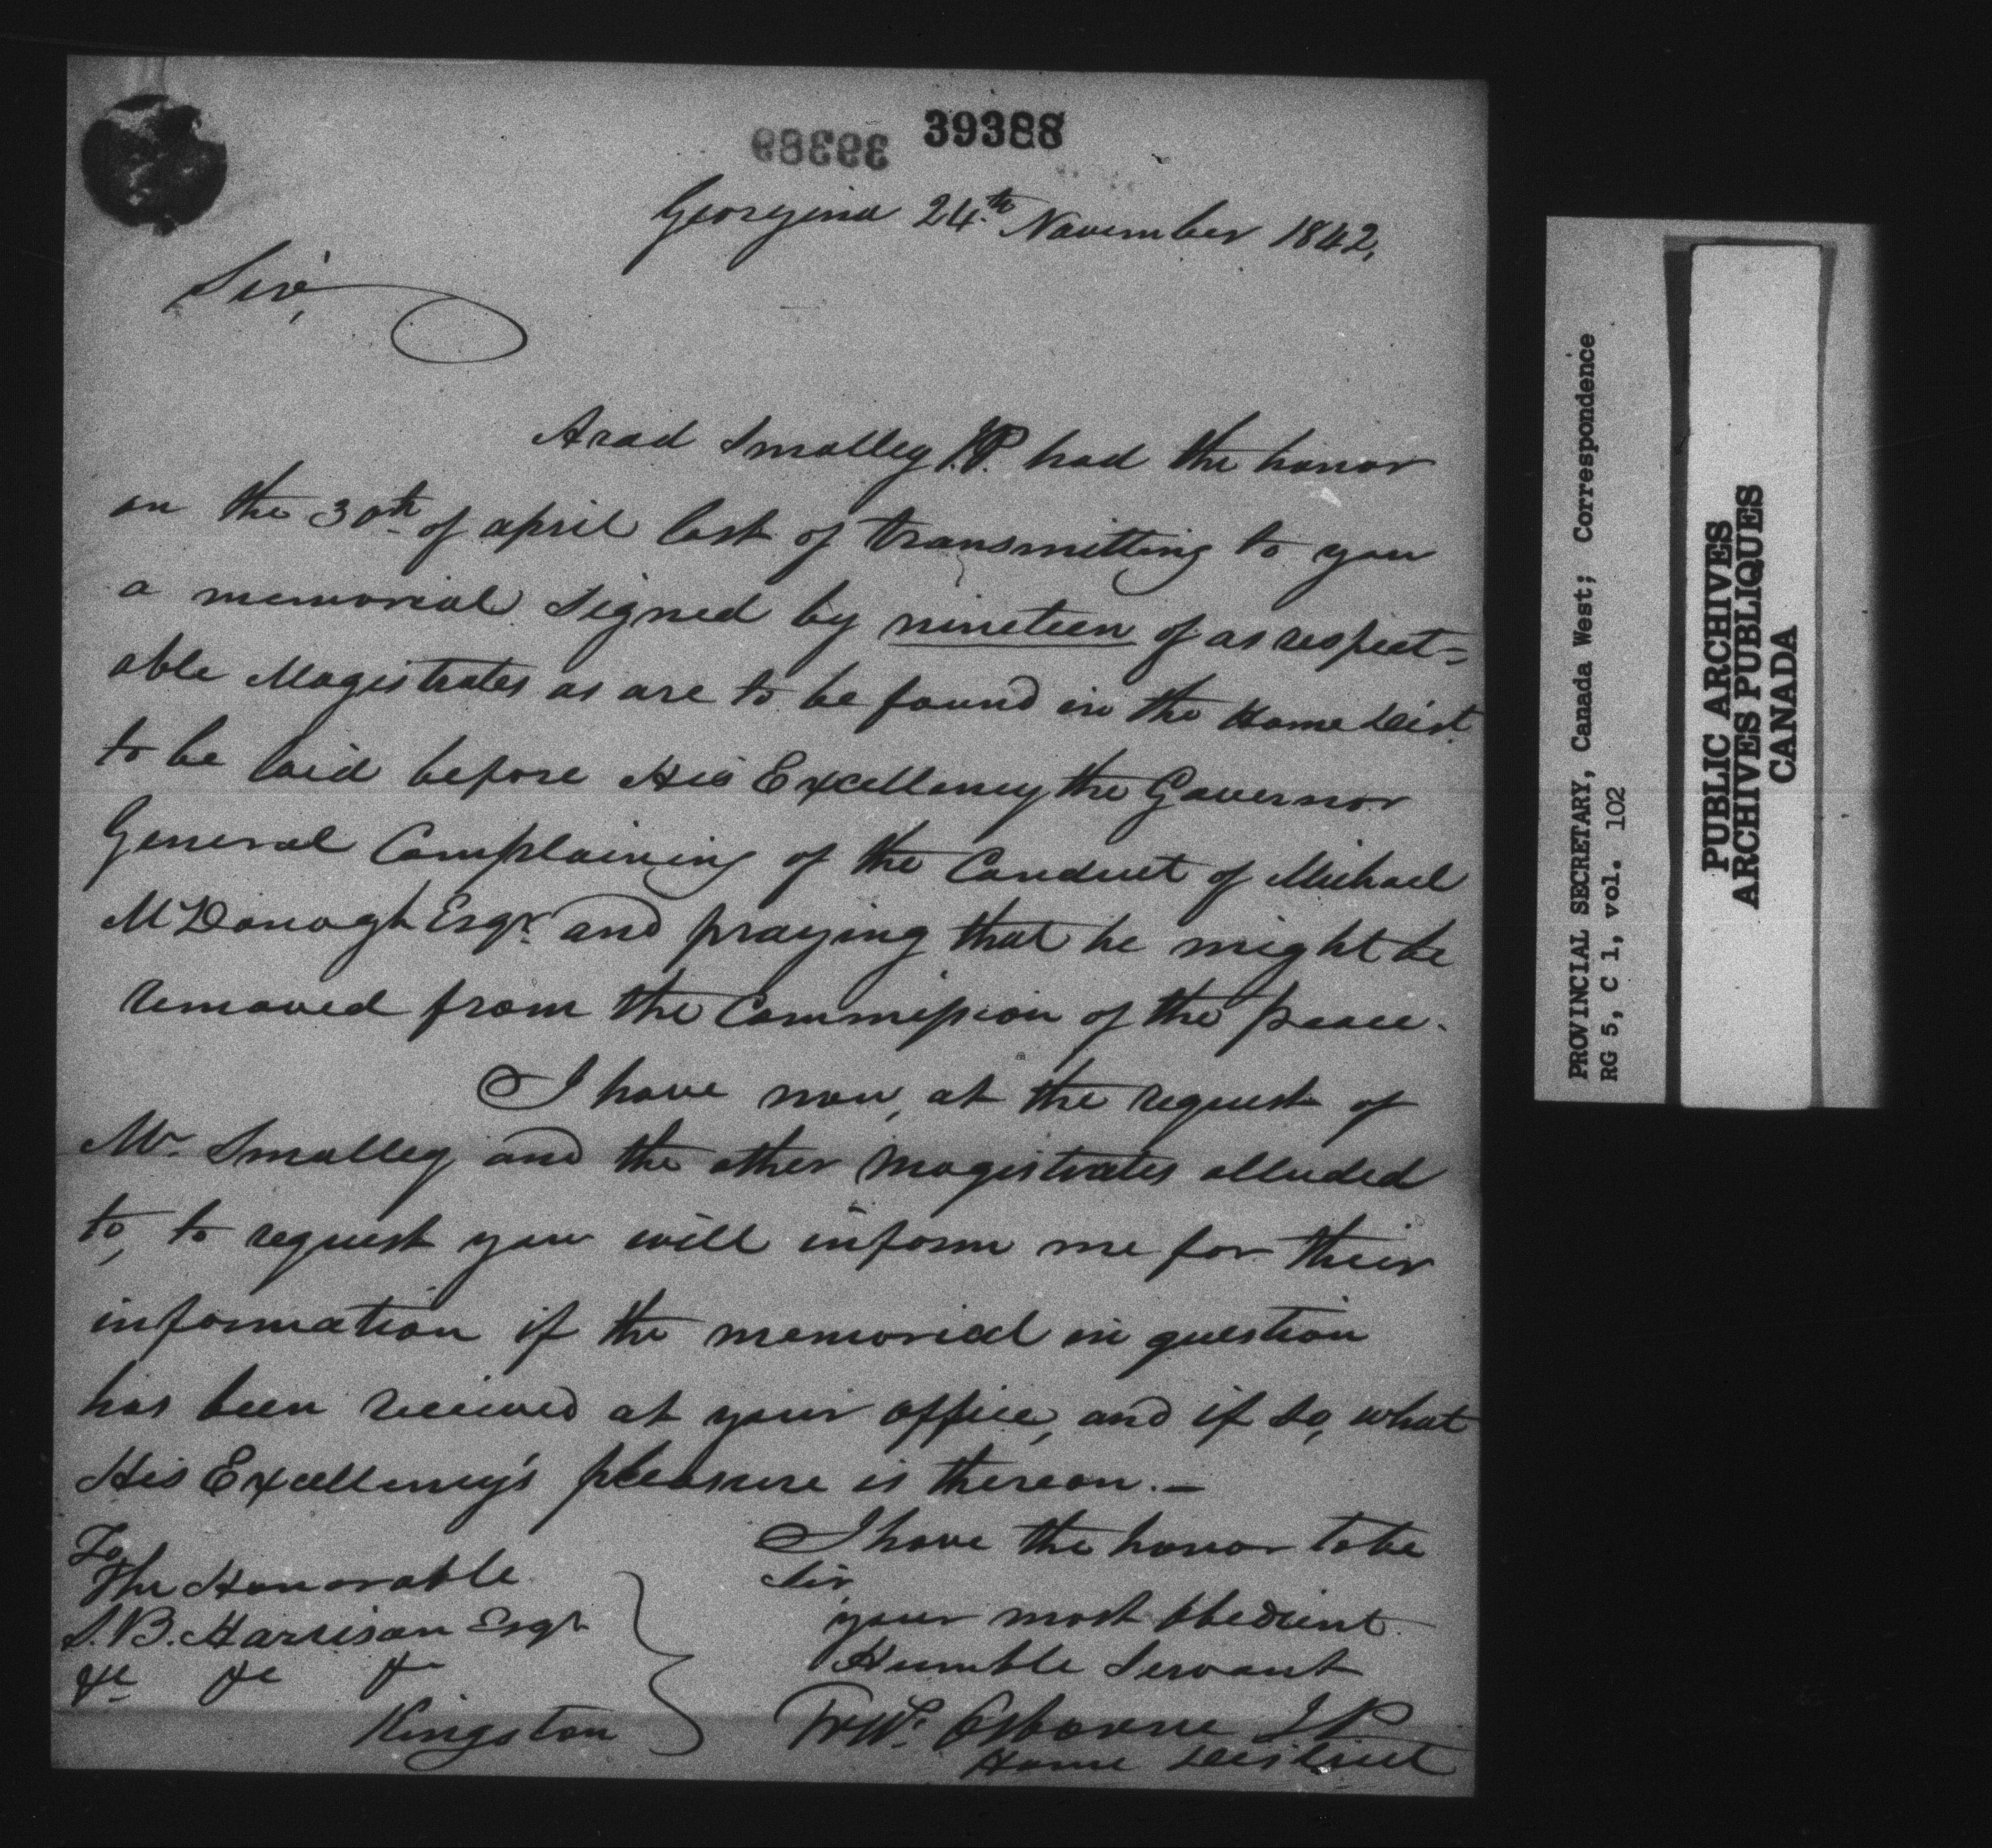 39388
39389
Georgina 24th November 1842,
Sir,
Arad Smalley J.P. had the honor
on the 30th of april last of transmitting to you
a memorial signed by nineteen of as respect=
able Magistrates as are to be found in the Home Dist.
to be laid before His Excellency the Governor
General Complaining of the Conduct of Michael
McDonogh Esqr. and praying that he might be
removed from the Commission of the peace.
I have now, at the request of
Mr. Smalley and the other Magistrates alluded
to, to request you will inform me for their
information if the memorial in question
has been received at your office, and if so, what
His Excellency's pleasure is thereon.—
I have the honor to be
Sir,
your most obedient
Humble Servant
Osborne JP
Home District
To
The Honorable
S. B. Harrison Esqr
&c &c &c
Kingston
PROVINCIAL SECRETARY, Canada West; Correspondence
RG 5, C 1, vol. 102
PUBLIC ARCHIVES
ARCHIVES PUBLIQUES
CANADA